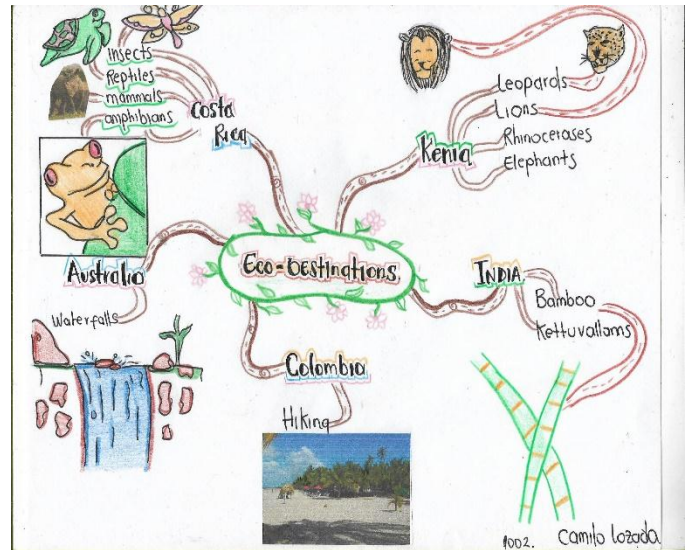 insects
Reptiles
mammals
amphibians
Costa
Rica
Kenia
Leopards
Lions
Rhinoceroses
Elephants
Eco-Destinations
Australia
Waterfalls
INDIA
Bamboo
Kettuvallams
Colombia
Hiking
1002. Camilo lozada